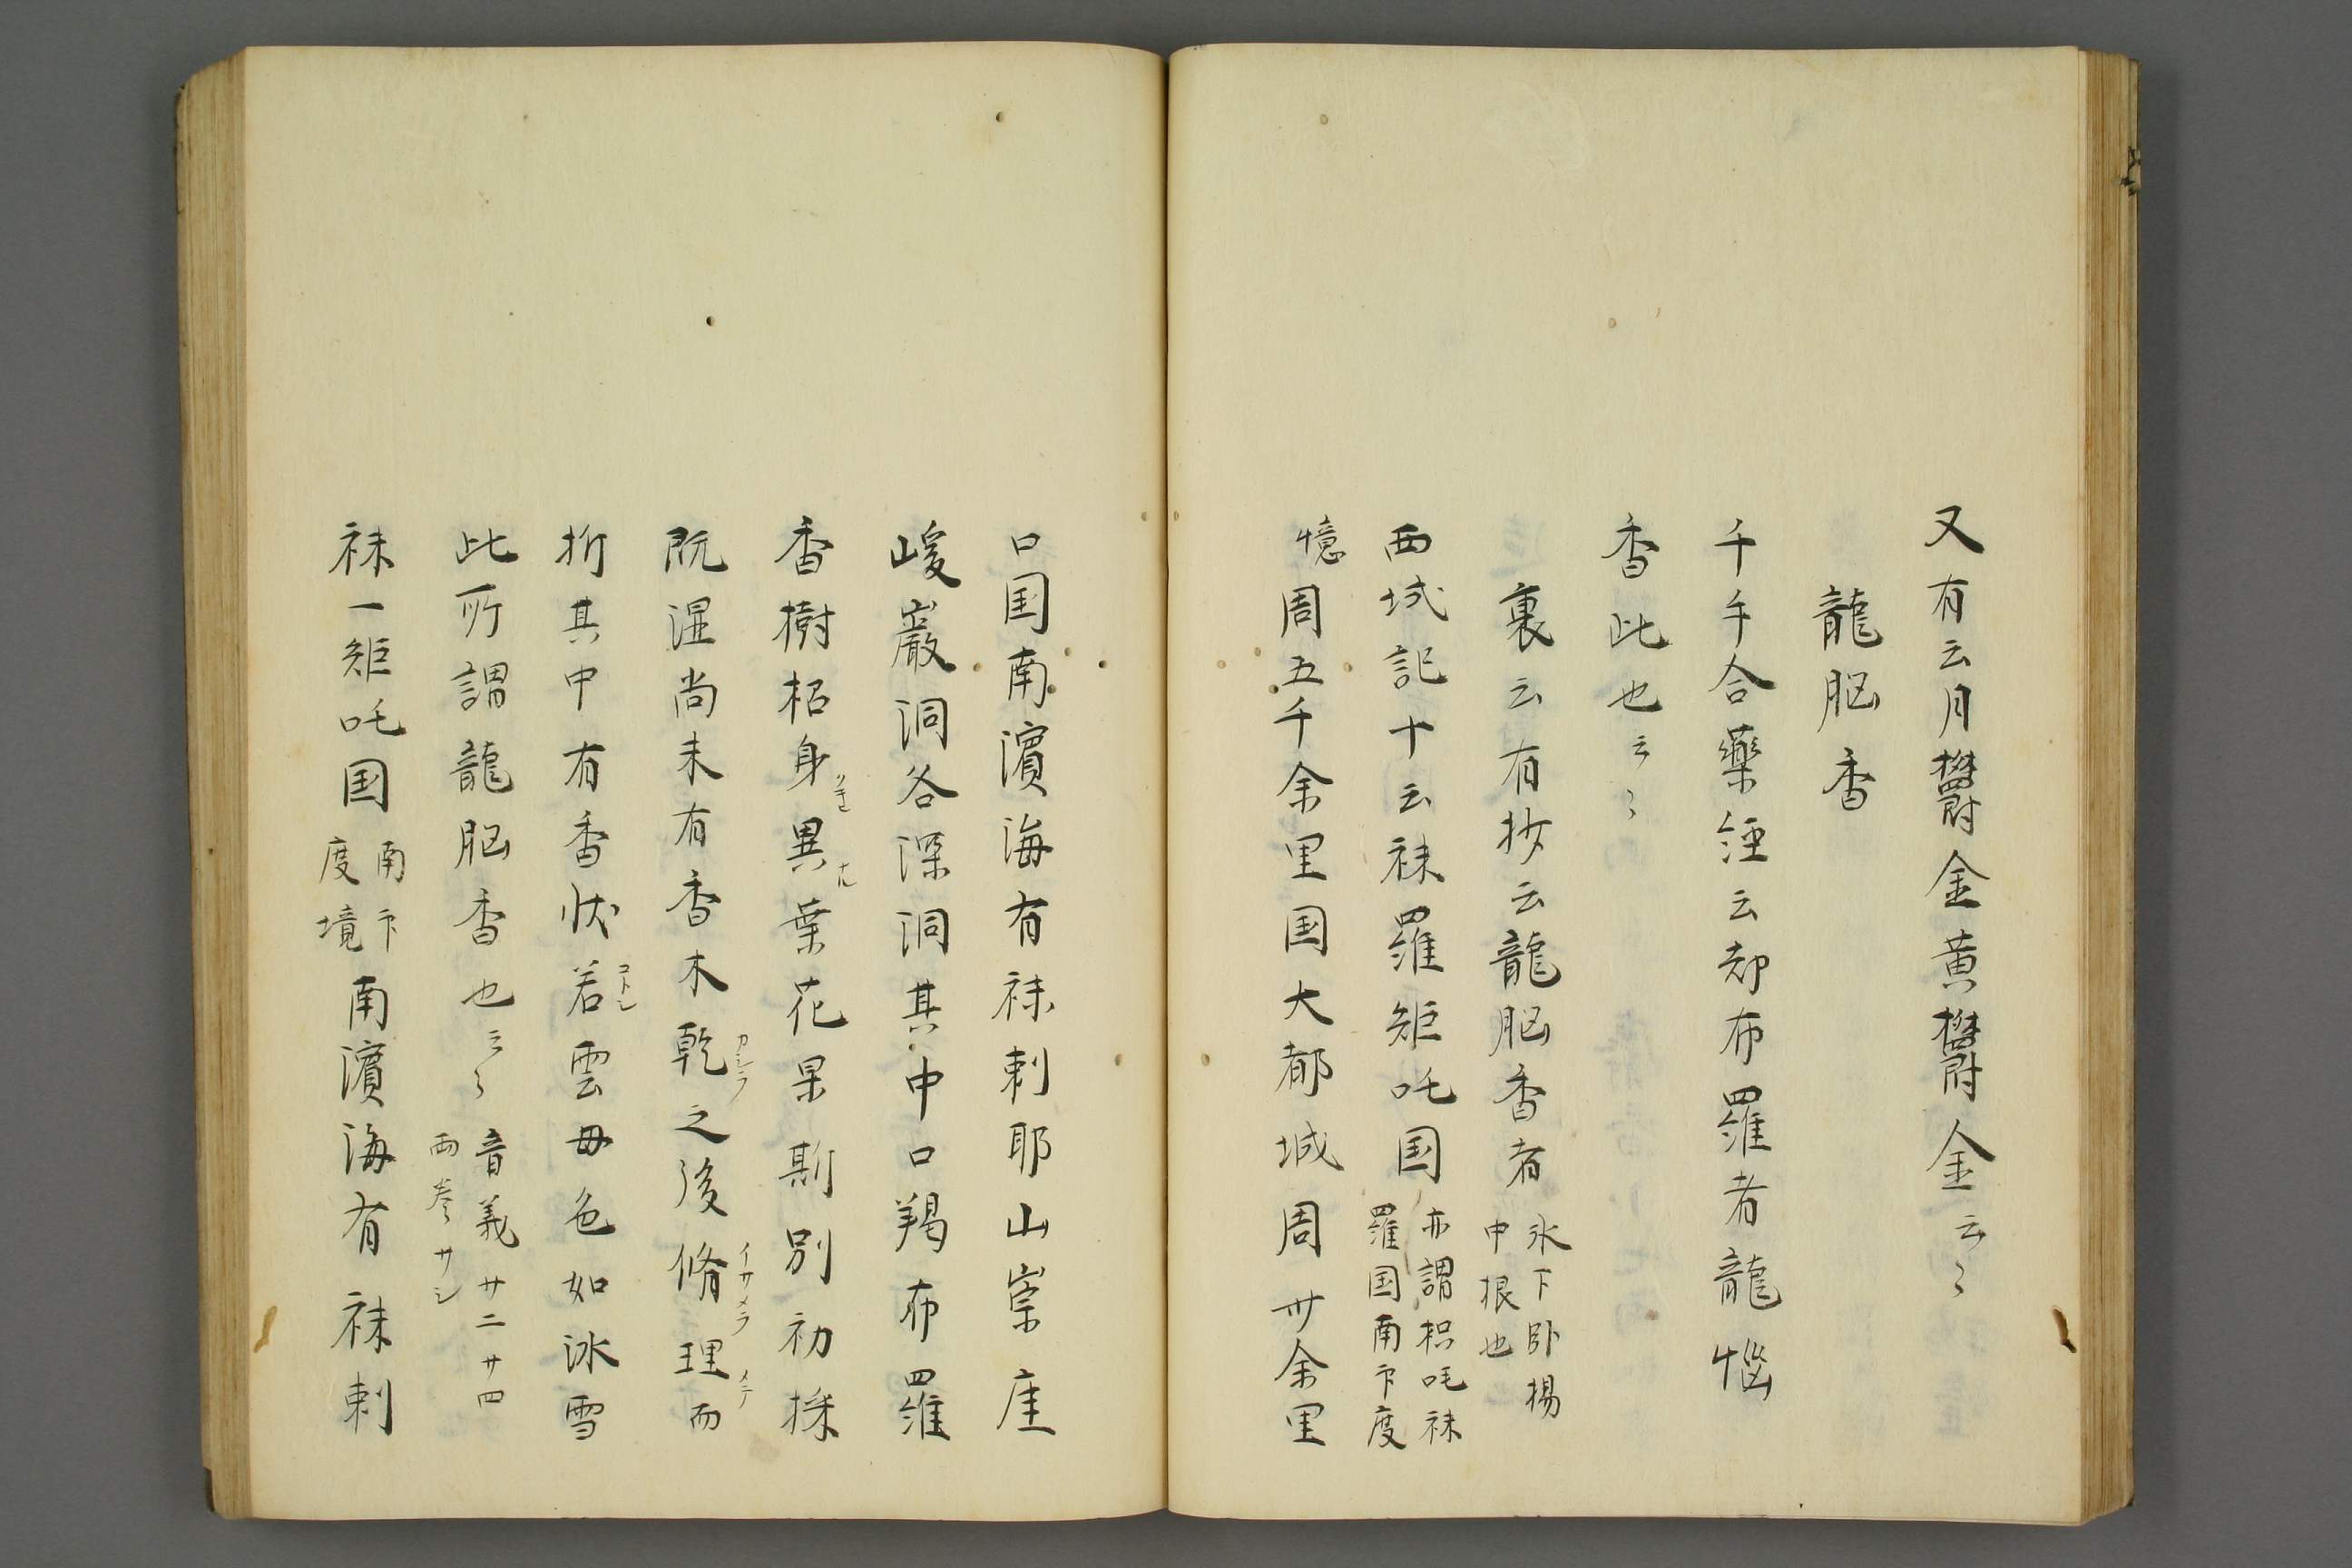 又有云月欝金黄欝金云々
龍脳香
千手合藥経云却布羅者龍惱
香此也云々
裏云有抄云龍脳香者
氷下卧楊
中根也
西域記十云秣羅矩吒国
亦謂枳吒秣
羅国南卬度
憶周五千余里国大都城周卅余里
口国南濵海有秣剌耶山崇崖
峻巖洞谷深洞其中口羯布羅
香樹柗身異葉花果斯別初採
既湿尚未有香木乾之後脩理而
折其中有香状若雲毋色如氷雪
此所謂龍脳香也云々
音義廿二廿四
両巻サシ
秣一矩吒国
南卬
度境
南濵海有秣剌